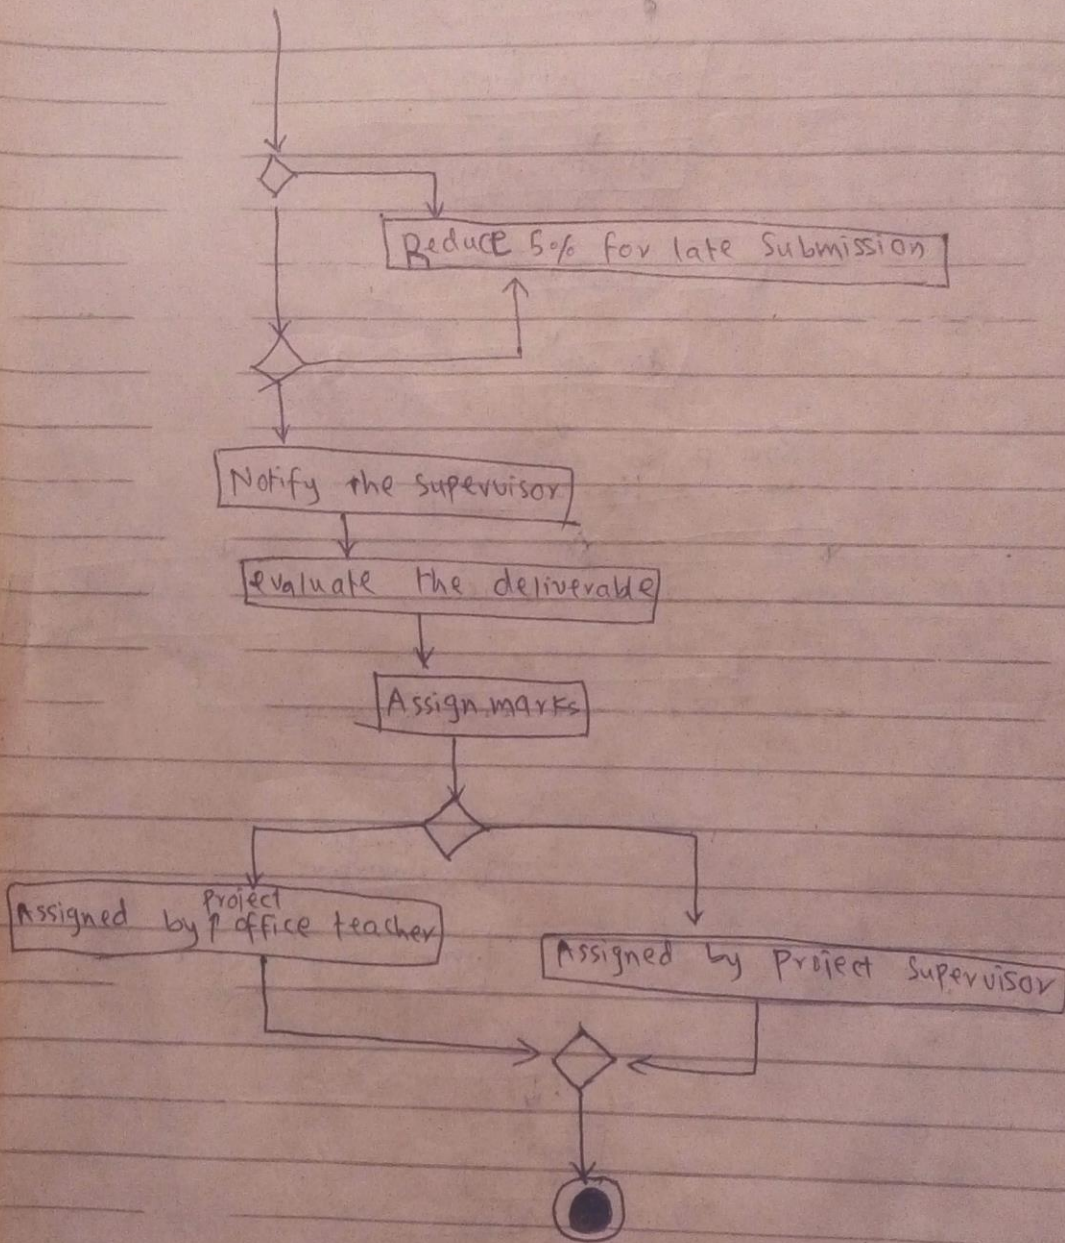 Reduce 5% for late Submission
Notify the Supervisor
evaluate the deliverable
Assign marks
Assigned by project office teacher
Assigned by Project Supervisor